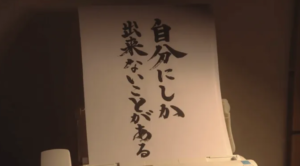 自分にしか
出来ないことがある